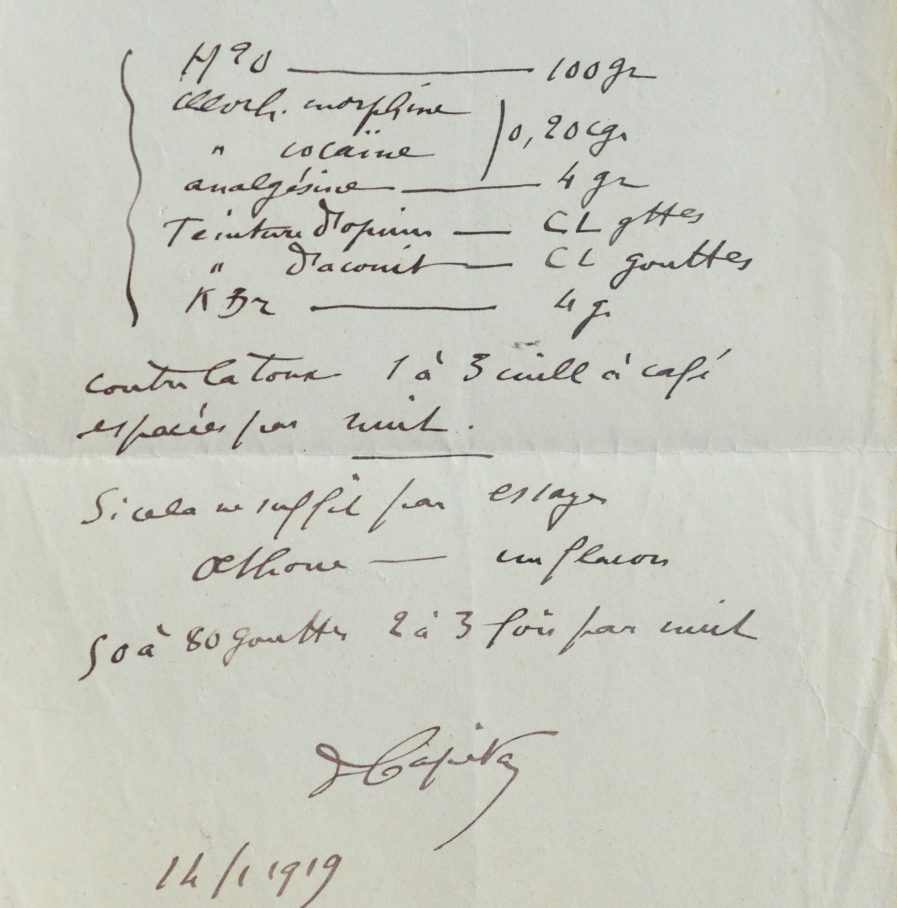 H2O — 100 gr
chlorh. morphine
" cocaïne 0,20 cgr
analgésine — 4 gr
Teinture d'opium — CL gttes
" d'aconit — CL gouttes
KBr — 4 g
contre la toux 1 à 3 cuill à café
espacées par nuit.
Si cela ne suffit pas essayer
Æthone — un flacon
50 à 80 gouttes 2 à 3 fois par nuit
Dr Capitan
14/1 1919